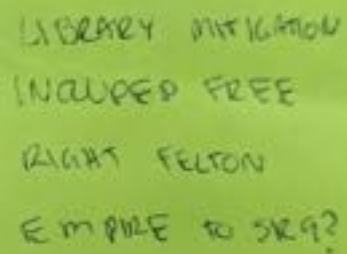 LIBRARY MITIGATION
INCLUDED FREE
RIGHT FELTON
EMPIRE to SR9?